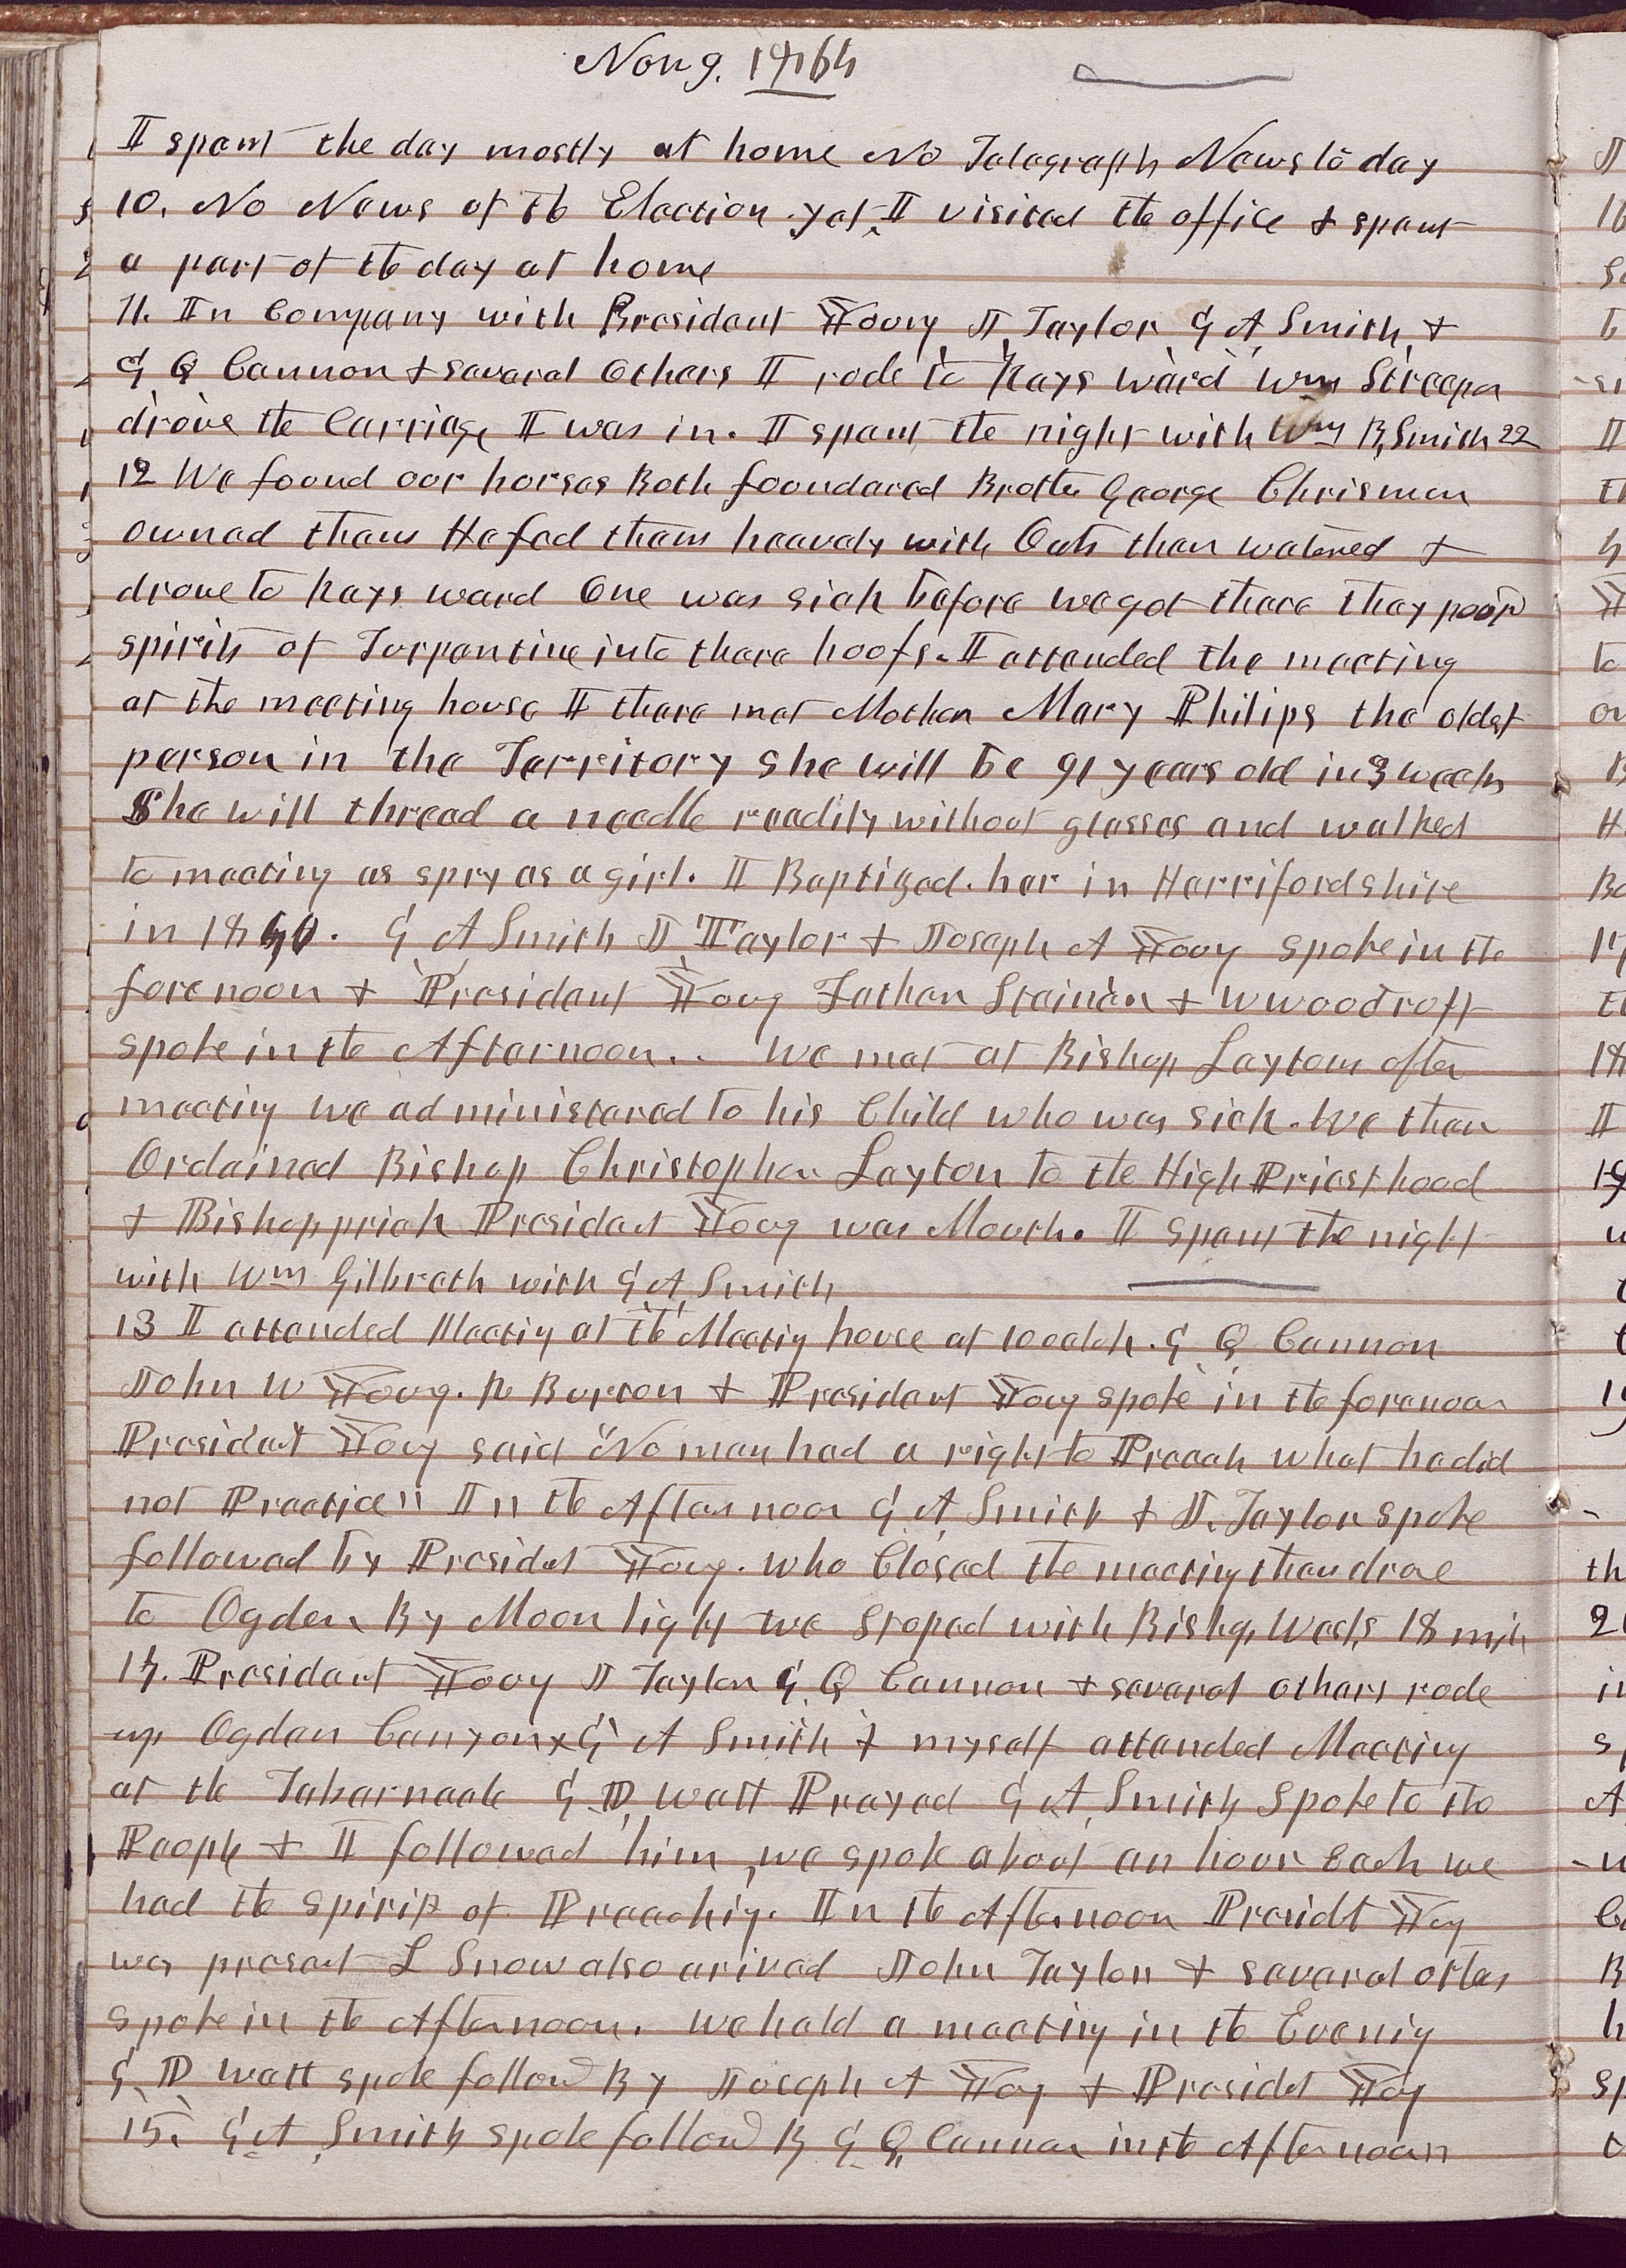 Nov 9. 1864
I spent the day mostly at home No Telegraph News to day
10. No News of the Election yet I visited the office & spent
a part of the day at home
11. In Company with President Young J Taylor G A Smith &
G Q Cannon & several others I rode to Kays ward Wm Streeper
drove the Carriage I was in. I spent the night with Wm B Smith 22
12 We found our horses Both foundered Brother George Chrisman
owned them He fed them heavely with Oats then watered &
drove to Kays ward One was sick before we got there they poor
spirits of Turpentine into there hoofs. I attended the meeting
at the meeting house I there met Mother Mary Philips the oldest
person in the Territory She will be 91 years old in 3 weeks
She will thread a needle readily without glasses and walked
to meeting as spry as a girl. I Baptized her in Herrifordshire
in 1840. G A Smith J Taylor & Joseph A Young spoke in the
forenoon & President Young Father Stainer & W Woodruff
spoke in the Afternoon.. We met at Bishop Laytons after
meeting we administered to his Child who was sick. We then
Ordained Bishop Christopher Layton to the High Priesthood
& Bishopprick President Young was Mouth. I spent the night
with Wm Gilbreth with G A Smith
13 I attended Meeting at the Meeting house at 10 oclok. G Q Cannon
John W Young. R Burton & President Young spoke in the forenoon
President Young said "No man had a right to Preach what he did
not Practice" In the Afternoon G A Smith & J. Taylor spoke
followed by President Young. who Closed the meeting then drove
to Ogden By Moon light we stoped with Bishop West, 18 mils
14. President Young J Taylor G Q Cannon & several others rode
up Ogden Canyon & G A Smith & myself attended Meeting
at the Tabernacle G D Watt Prayed G A Smith Spoke to the
People & I followed him, we spoke about an hour Each we
had the spirit of Preaching. In the Afternoon Presidt Young
was present L Snow also arived John Taylor & several others
spoke in the Afternoon. We held a meeting in the Evenig
G D Watt spoke followd By Joseph A Young & President Young
15. G A Smith spoke followd By G Q Cannon in the Afternoon